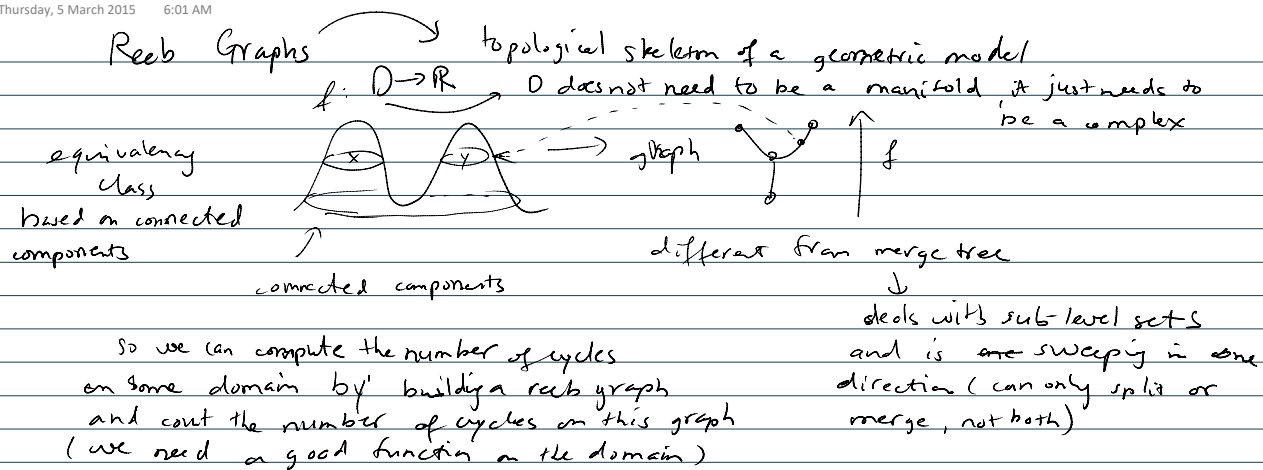 Thursday, 5 March 2015 6:01 AM
Reeb Graphs topological skeleton of a geometric model
f: D→ℝ D does not need to be a manifold, it just needs to
be a complex
equivalency
class
based on connected
components
x y graph f
connected components
different from merge tree
↓
deals with sub-level sets
and is are sweeping in one
direction (can only split or
merge, not both)
so we can compute the number of cycles
on some domain by building a reeb graph
and cout the number of cycles on this graph
(we need a good function on the domain)